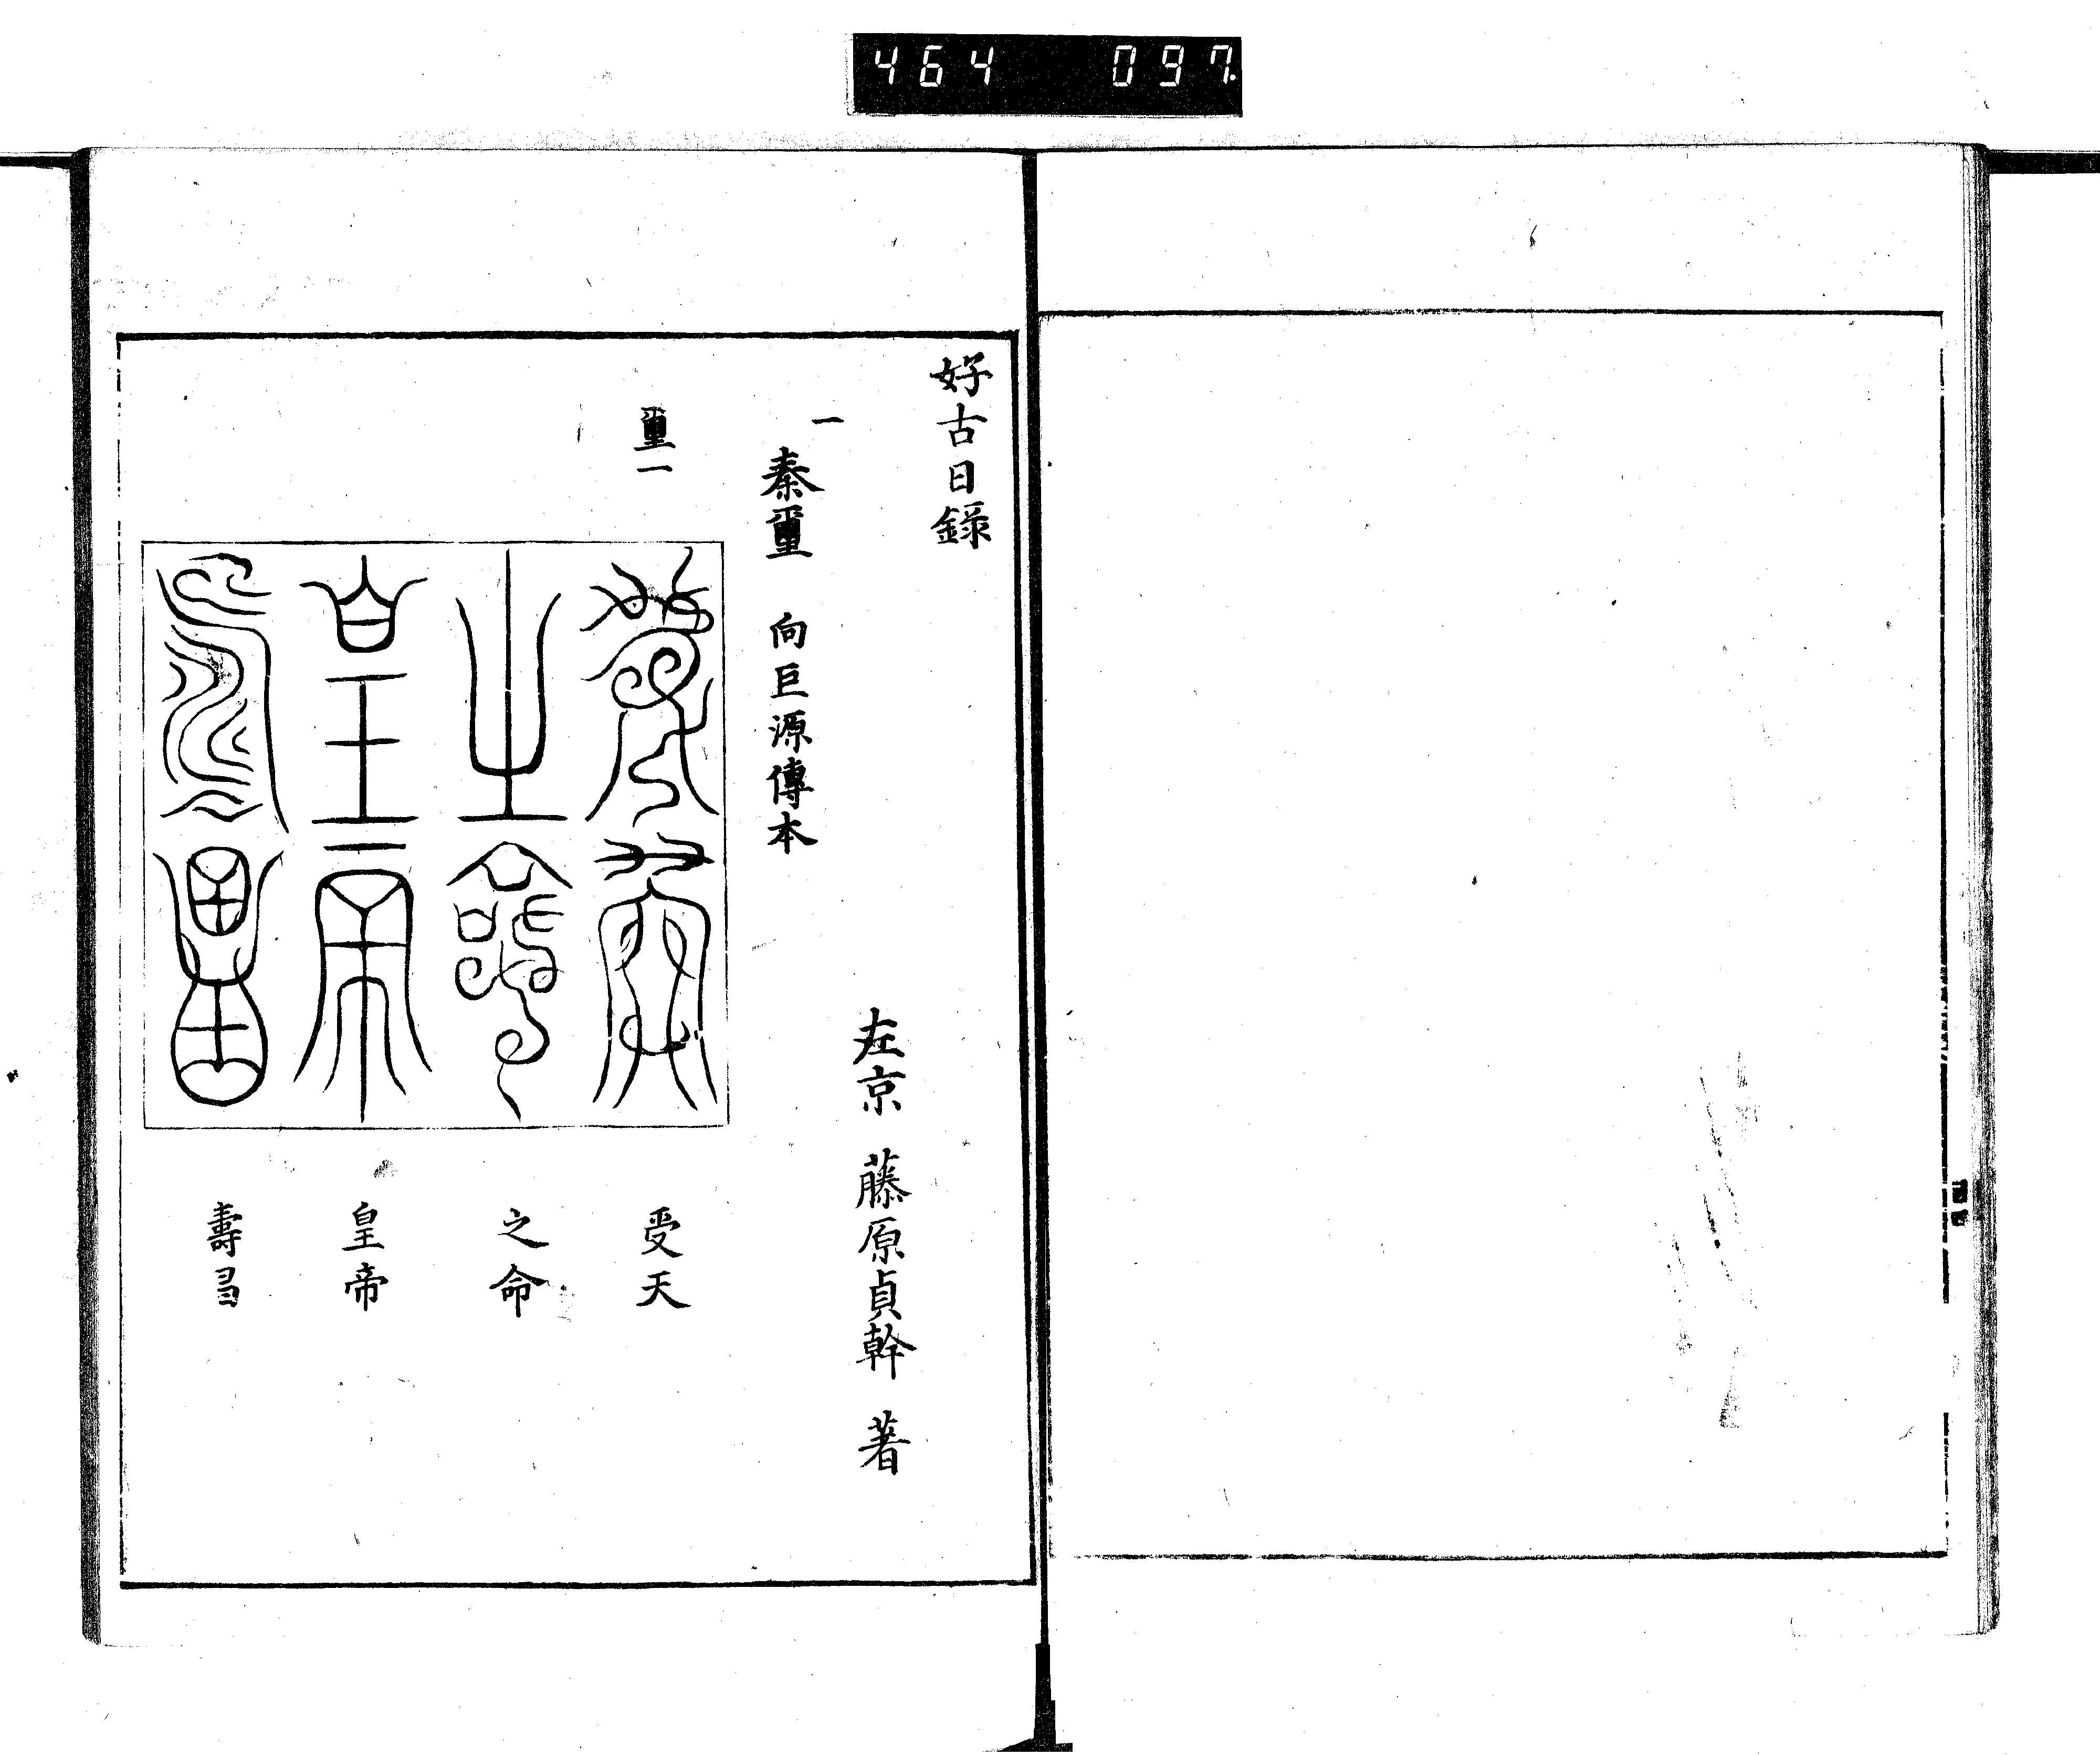 464 097.
好古日録
左京 藤原貞幹 著
一
秦璽 向巨源傳本
璽一
受天
之命
皇帝
壽昌